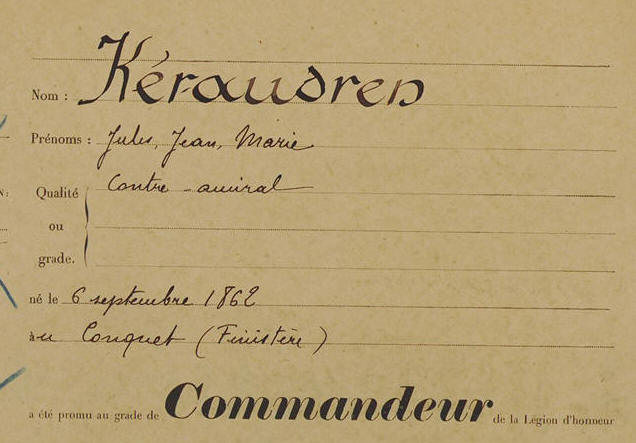 Nom : Kéraudren
Prénoms : Jules, Jean, Marie
Qualité ou grade. Contre-amiral
né le 6 septembre 1862
au Conquet (Finistère)
a été promu au grade de Commandeur de la Légion d'honneur